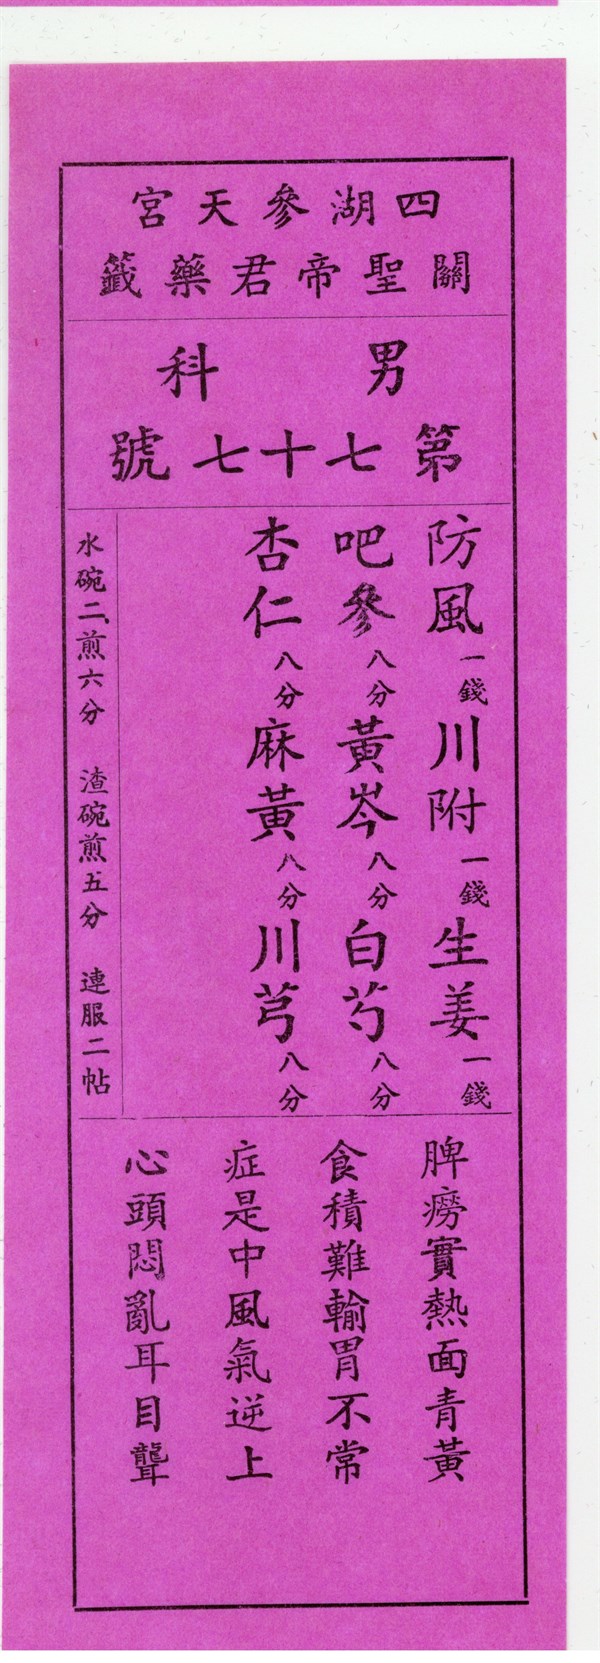 四湖參天宮
關聖帝君藥籤
男科
第七十七號
防風一錢川附一錢生姜一錢
吧參八分黃岑八分白芍八分
杏仁八分麻黃八分川芎八分
水碗二煎六分 渣碗煎五分 連服二帖
脾癆實熱面青黃
食積難輸胃不常
症是中風氣逆上
心頭悶亂耳目聾